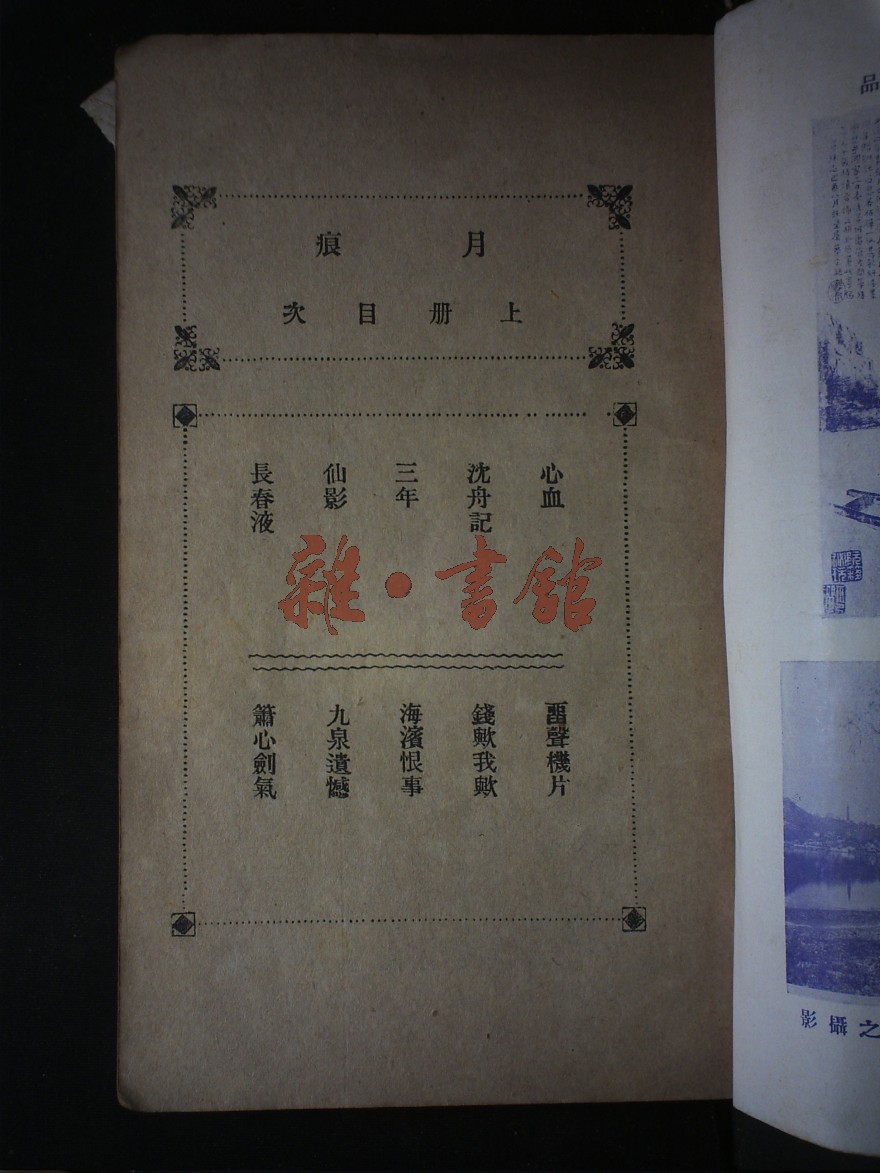 月痕
上册目次
心血
沈舟記
三年
仙影
長春液
雜·書館
畱聲機片
錢歟我歟
海濱恨事
九泉遺憾
簫心劍氣
品
之攝影